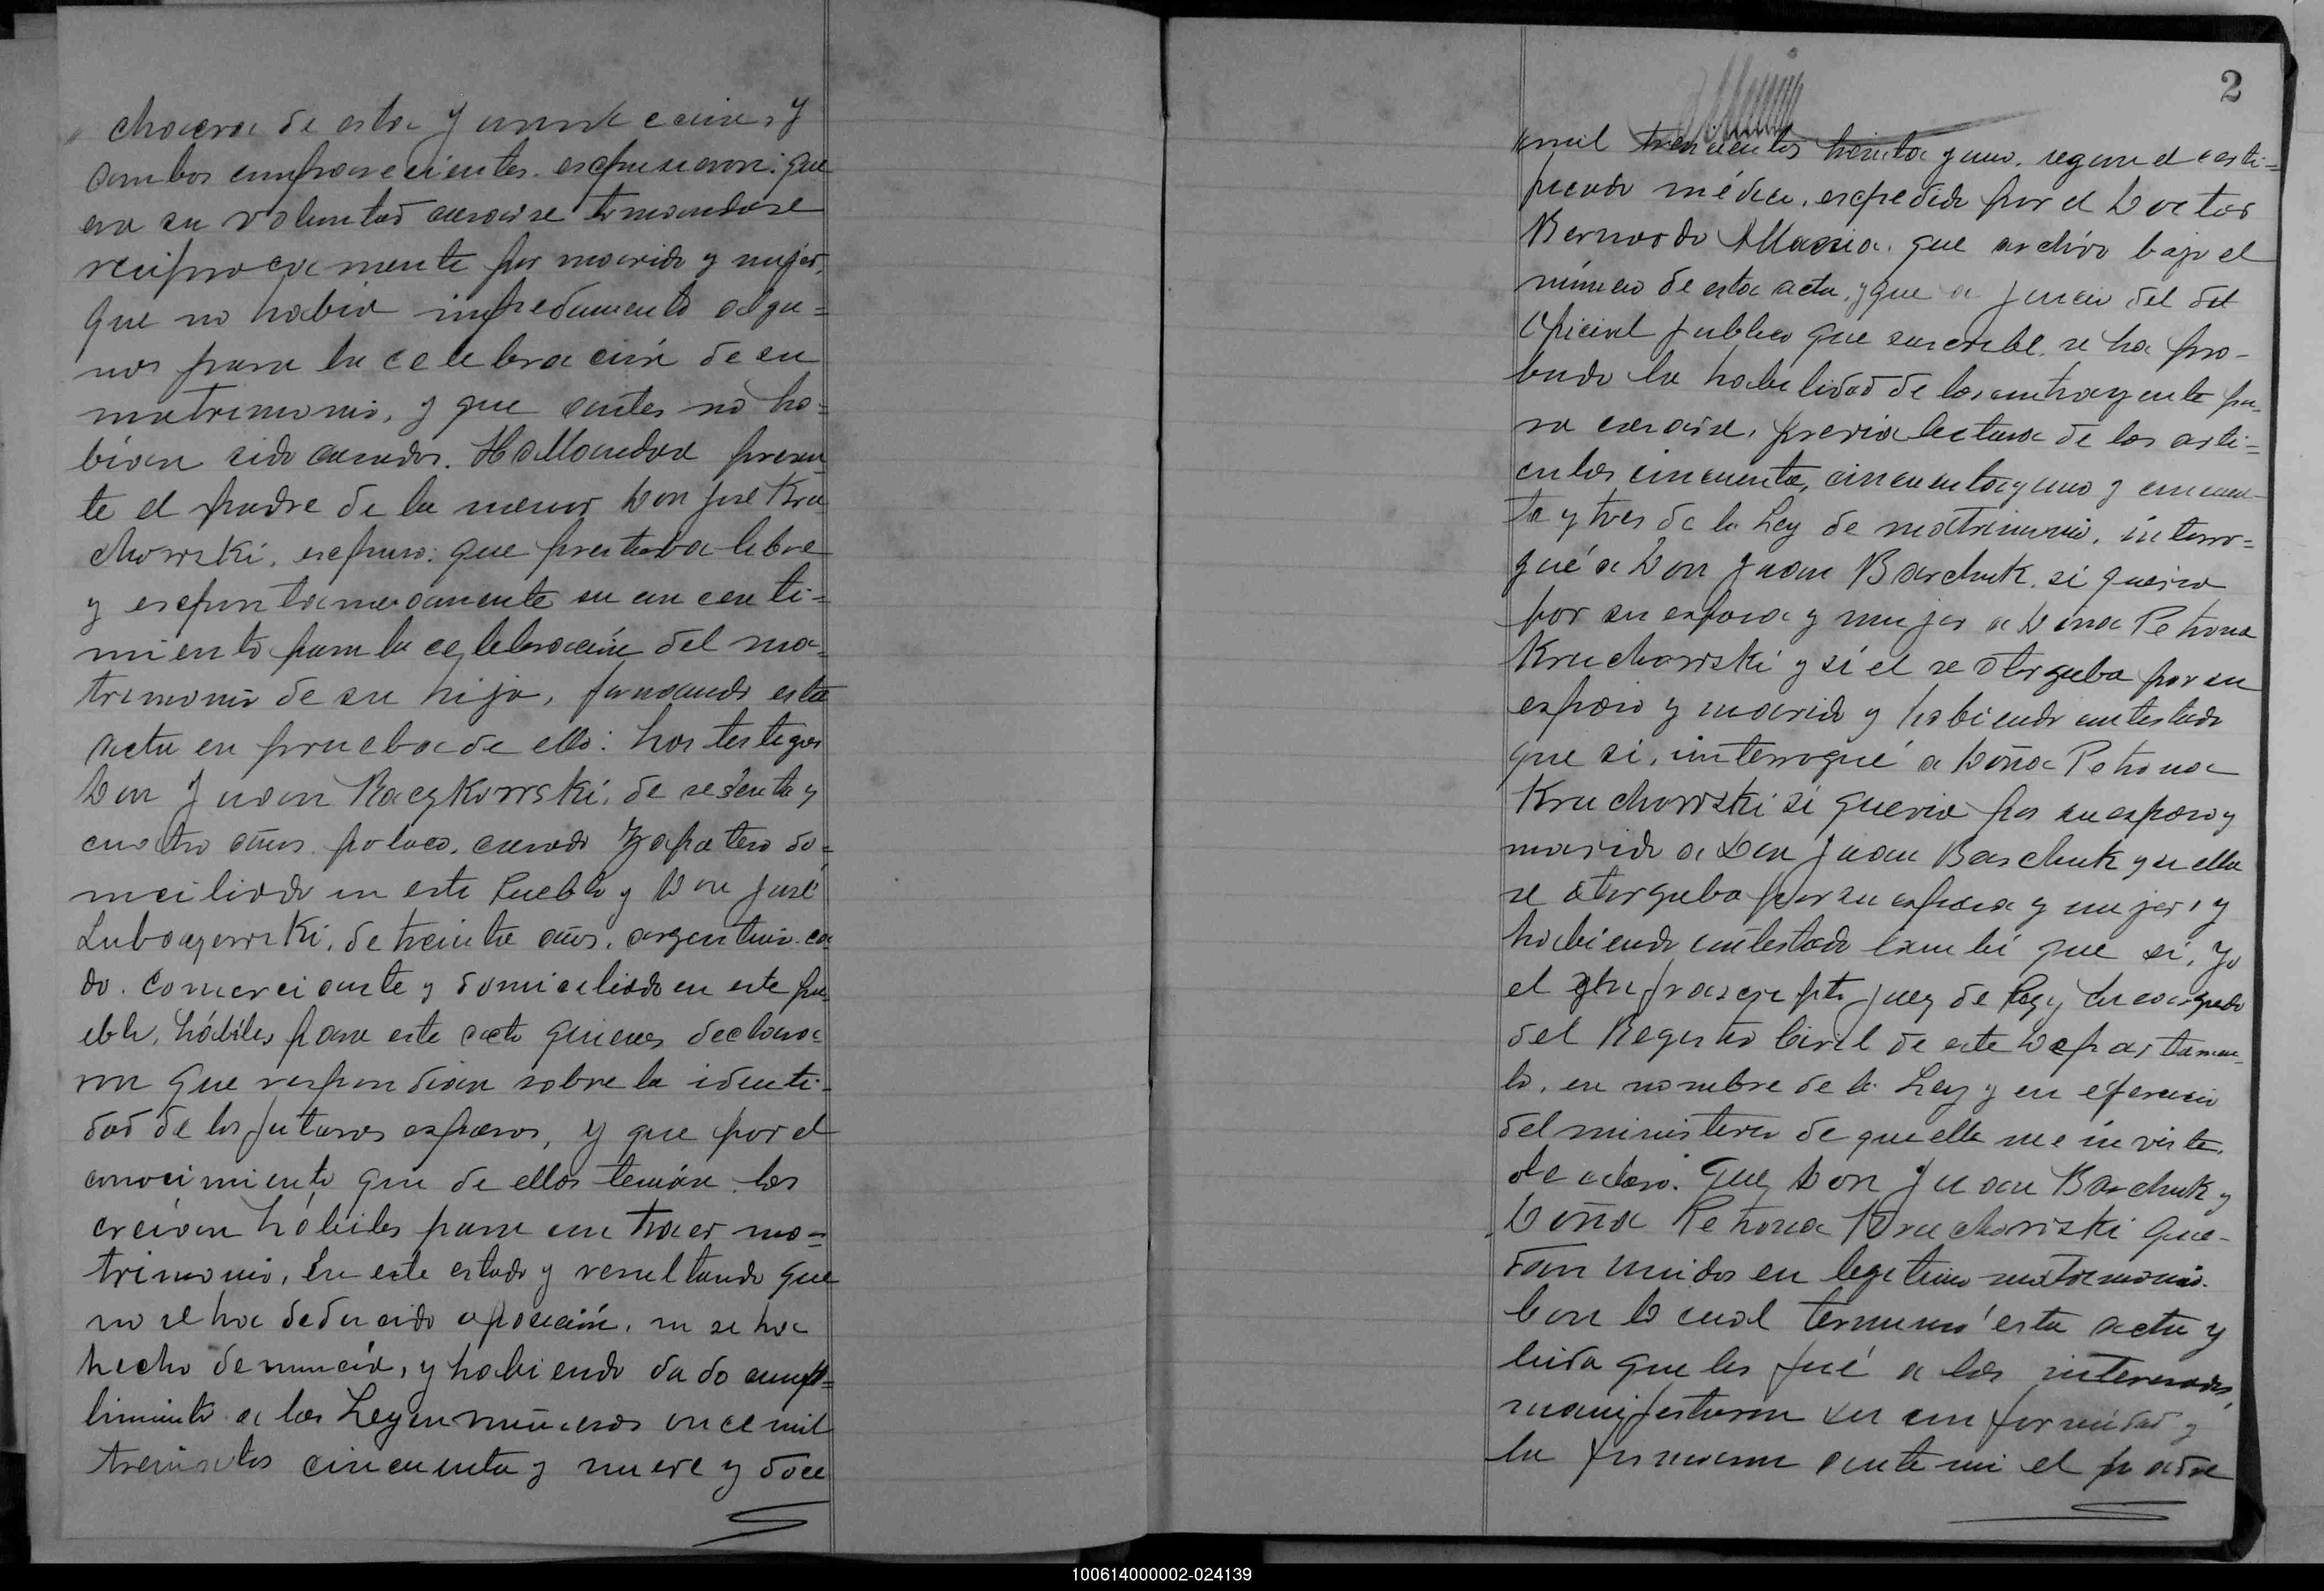 chacra de esta y
ambos comparecientes expusieron: que
era su voluntad casarse tomandose
reciprocamente por marido y mujer,
que no había impedimento algu=
nos para la celebración de su
matrimonio, y que antes no ha=
bían sido casados. Hallandose presen
te el padre de la menor Don José Kru
chowski, expuso: que prestaba libre
y espontaneamente su consenti=
miento para la celebración del ma=
trimonio de su hija, firmando esta
acta en prueba de ello: Los testigos
Don Juan Raczkowski, de sesenta y
cuatro años, polaco, casado Zapatero do=
miciliado en este Pueblo y Don José
de treinta años, argentino ca
do. Comerciante y domiciliado en este pu
eblo, hábiles para este acto quienes declara=
ron que respondían sobre la identi=
dad de los futuros esposos, y que por el
conocimiento que de ellos tenían los
creían hábiles para contraer ma=
trimonio, En este estado y resultando que
no se ha deducido oposición, ni se ha
hecho denuncia, y habiendo dado cump=
limiento a las Leyes números once mil
trescientos cincuenta y nueve y doce
2
mil trescientos treinta y uno, segun el certi=
ficado médico, expedido por el Doctor
Bernardo que archivo bajo el
número de esta acta, y que a juicio del del
Oficial publico que suscribe se ha pro-
bado la habilidad de los contrayente pa-
ra casarse, previa lectura de los arti=
culos cincuenta, cincuenta y uno y cincuen-
ta y tres de la Ley de matrimonio, interro=
gué a Don Juan Barchuk si queria
por su esposa y mujer a Dona Petrona
Kruchowski y sí el se otorgaba por su
esposo y marido y habiendo contestado
que si, interrogué a Doña Petrona
Kruchowski si queria por su esposo y
marido a Don Juan Barchuk y si ella
se otorgaba por su esposa y mujer, y
habiendo contestado tambi que si, Yo
el infrascripto juez de Paz y Encargado
del Registro Civil de este Departamen-
to, en nombre de la Ley y en ejercicio
del ministerio de que ella me inviste,
declaro. Que Don Juan Barchuk y
Doña Petrona Kruchowski que-
dan unidos en legitimo matrimonio.
Con lo cual terminó esta acta y
leida que les fué a los interesados,
manifestaron su conformidad y
la firmaron ante mi el padre
100614000002-024139